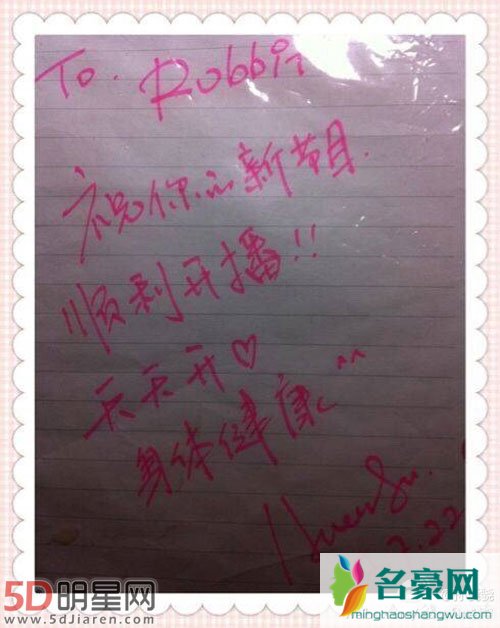 To. Robbin
祝你的新节目.
顺利开播!!
天天开♡
身体健康^^
2.22
5D明星网
www.5djiaren.com
名豪网
minghaoshangwu.com